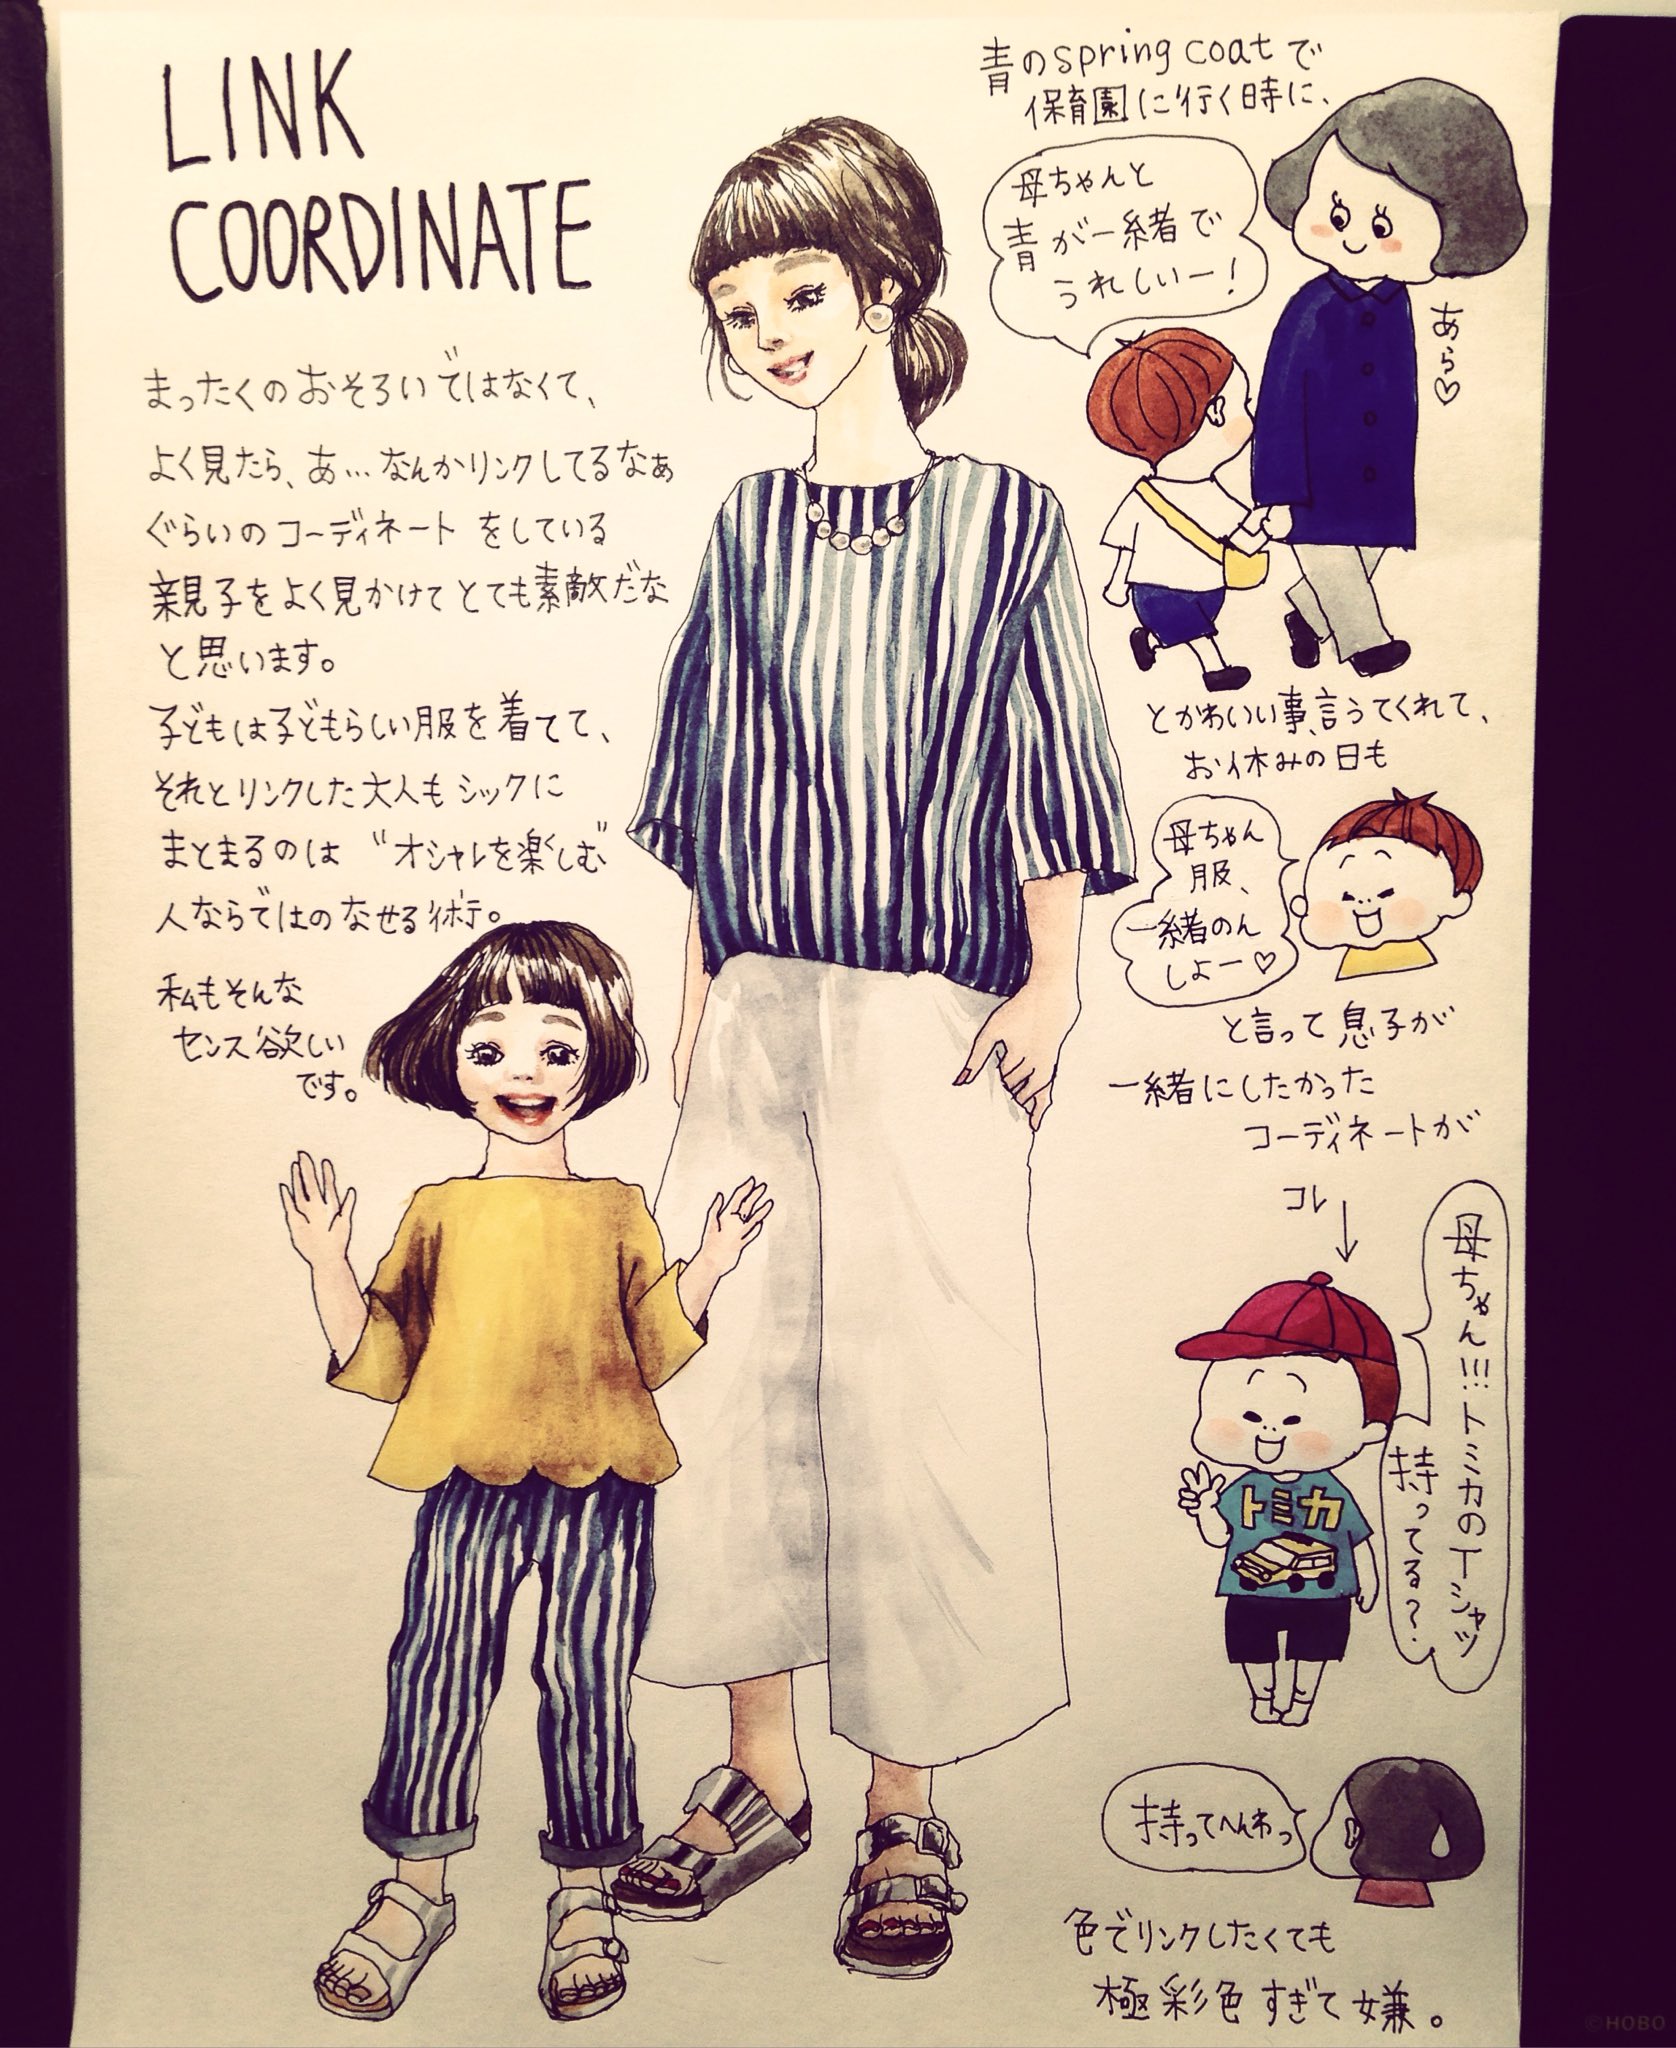 LINK
COORDINATE
まったくのおそろいではなくて、
よく見たら、あ…なんかリンクしてるなぁ
ぐらいのコーディネートをしている
親子をよく見かけてとても素敵だな
と思います。
子どもは子どもらしい服を着てて、
それとリンクした大人もシックに
まとまるのは〝オシャレを楽しむ〟
人ならではのなせる術。
私もそんな
センス欲しい
です。
青のspring coatで
保育園に行く時に、
母ちゃんと
青が一緒で
うれしいー!
あら♡
とかわいい事、言うてくれて、
お休みの日も
母ちゃん
服、
一緒のん
しよー♡
と言って息子が
一緒にしたかった
コーディネートが
コレ
母ちゃん!!!トミカのTシャツ
持ってる?
トミカ
持ってへんわっ
色でリンクしたくても
極彩色すぎて嫌。
©HOBO